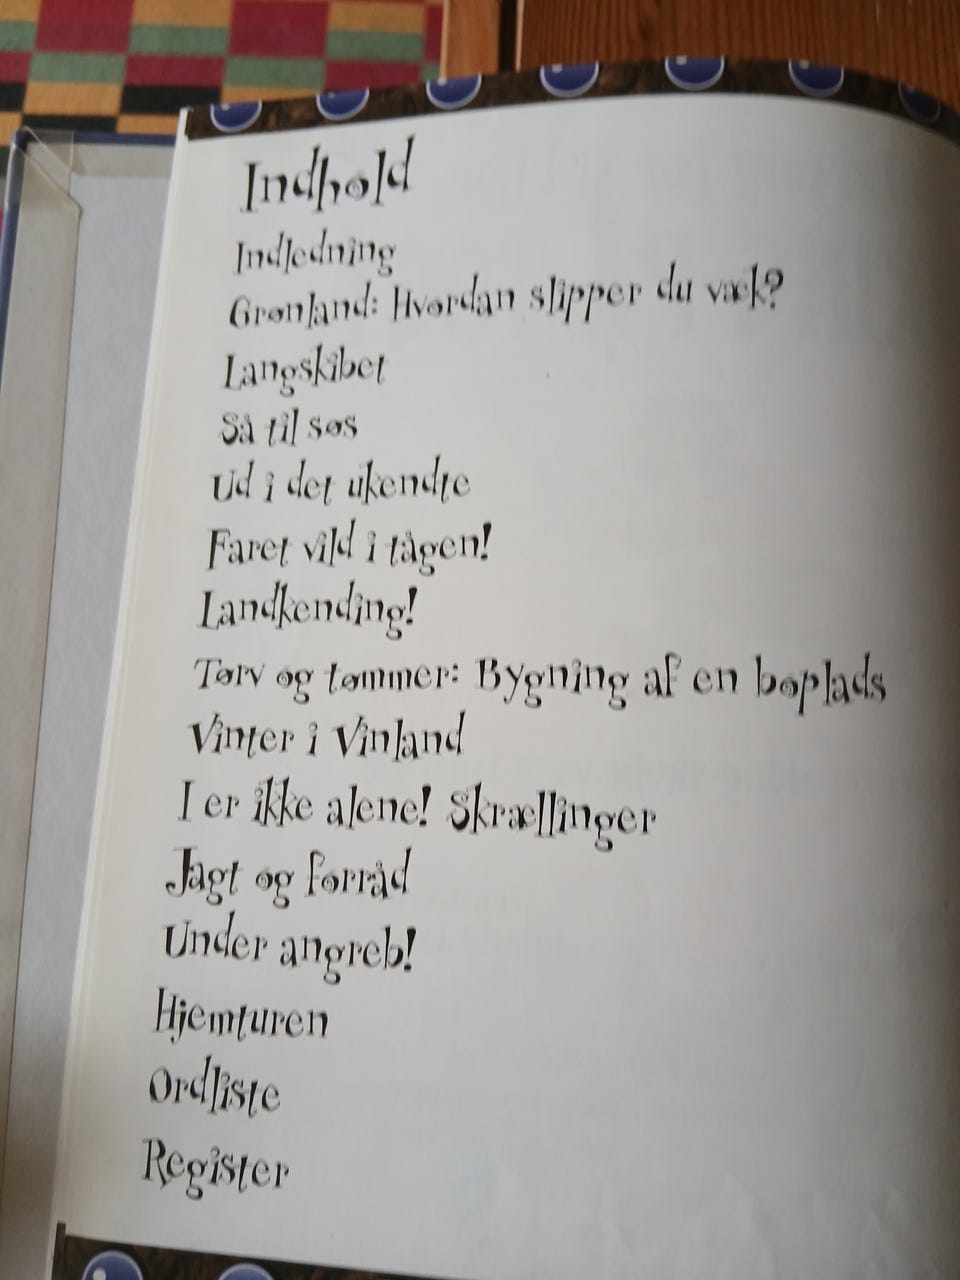 Indhold
Indledning
Grønland: Hvordan slipper du væk?
Langskibet
Så til søs
Ud i det ukendte
Faret vild i tågen!
Landkending!
Tørv og tømmer: Bygning af en boplads
Vinter i Vinland
I er ikke alene! Skrællinger
Jagt og forråd
Under angreb!
Hjemturen
Ordliste
Register